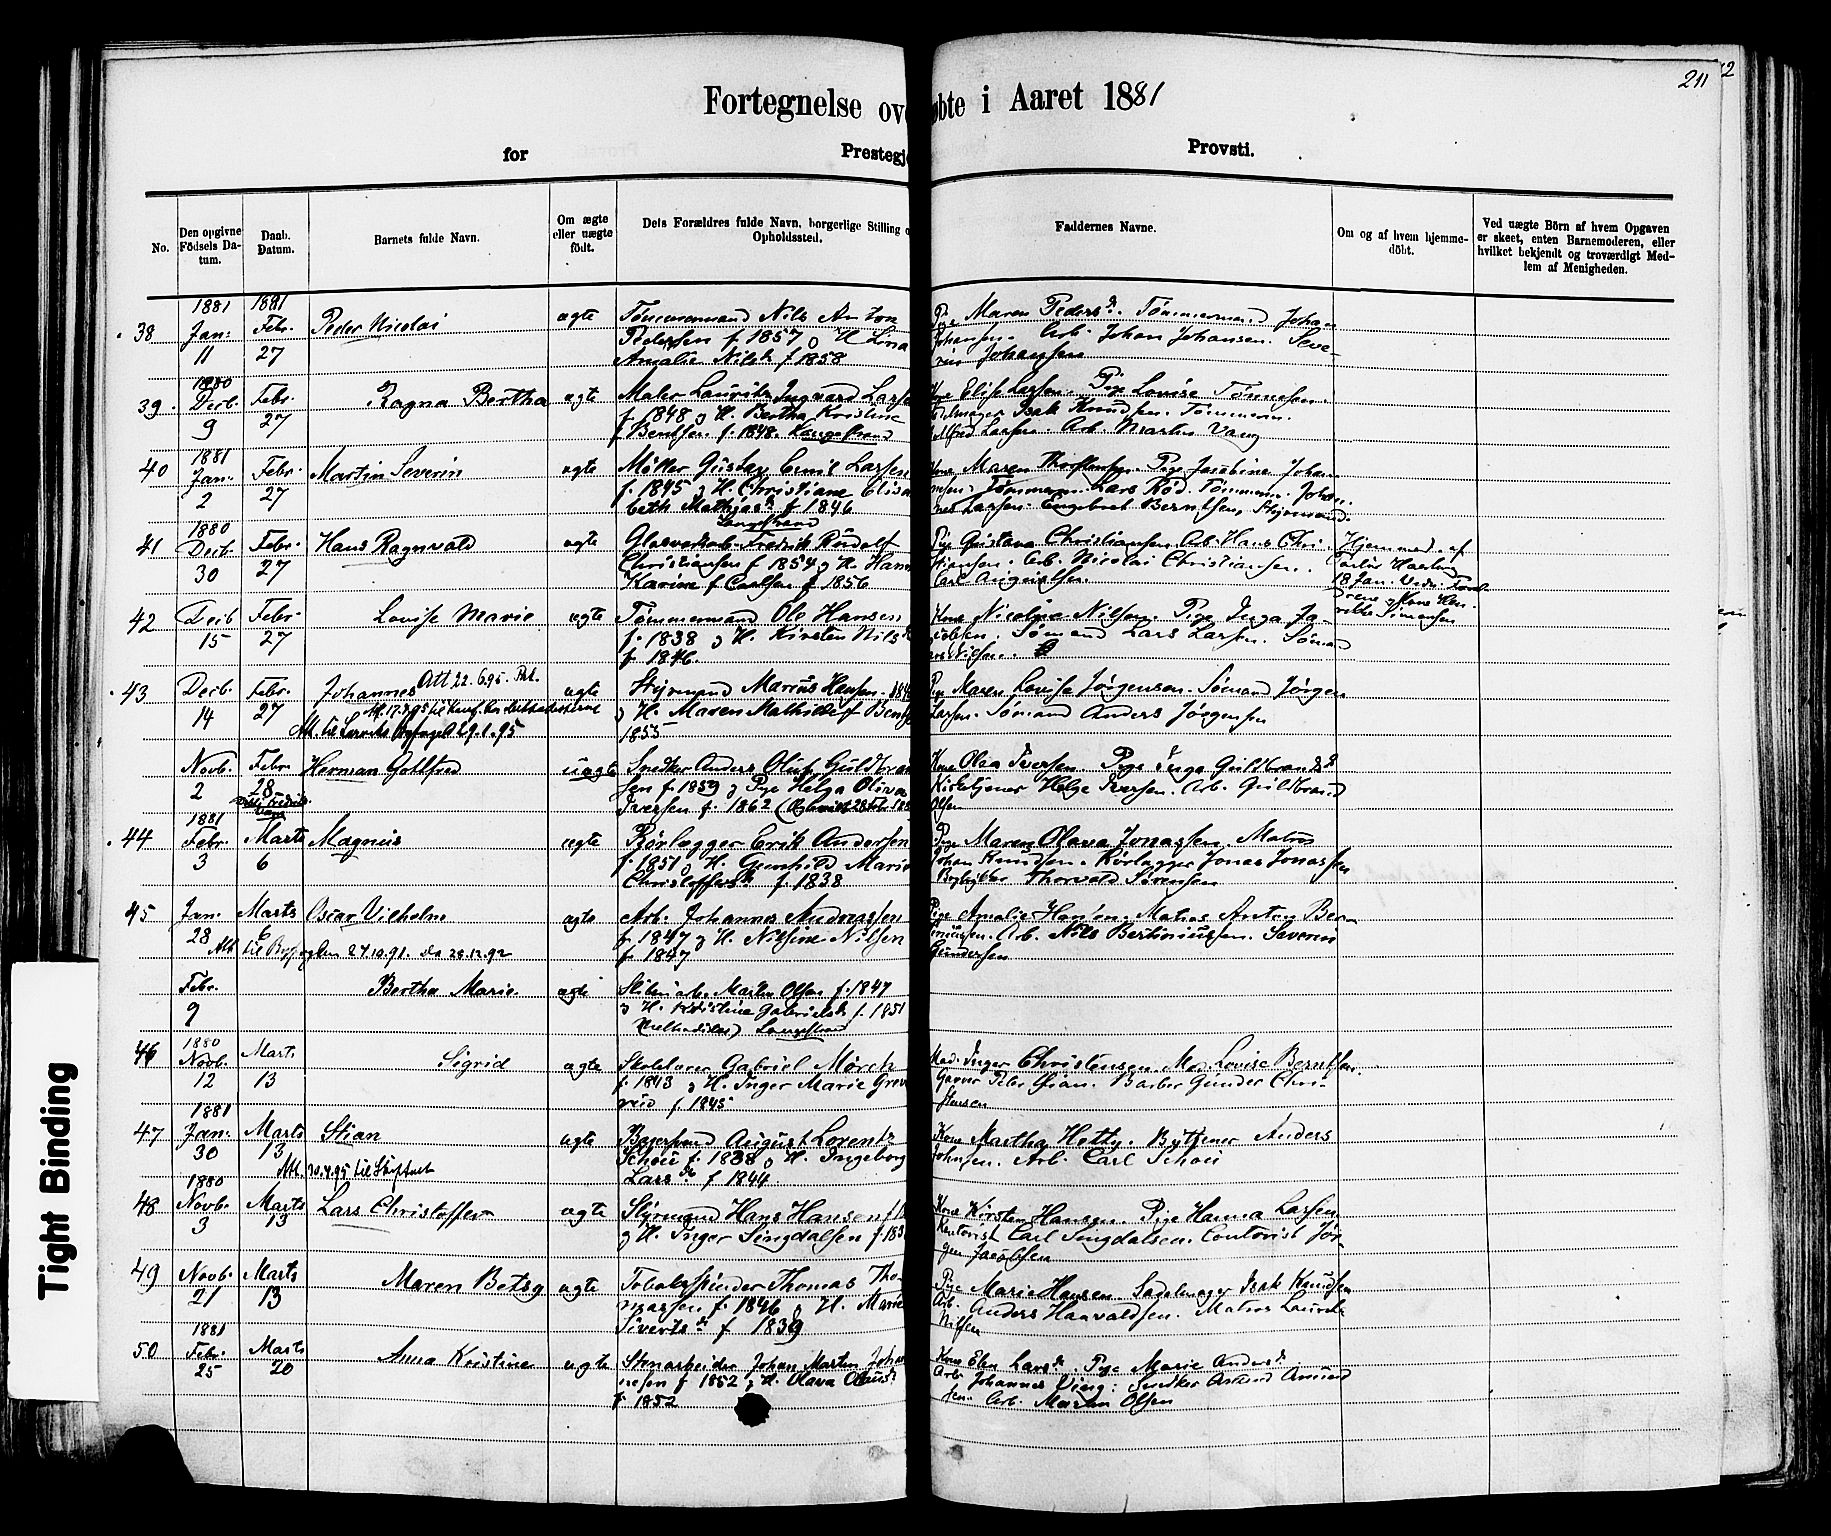 Fortegnelse ov
øbte i Aaret 1881
211
12
for
Prestegje
Provsti.
No.
Den opgivne Födsels Da-
tum.
Daab.
Datum.
Barnets fulde Navn.
Om ægte
eller uægte
födt.
Dets Forældres fulde Navn, borgerlige Stilling o
Opholdssted.
Faddernes Navne.
Om og af hvem hjemme-
döbt.
Ved uægte Börn af hvem Opgaven
er skeet, enten Barnemoderen, eller
hvilket bekjendt og troværdigt Med-
lem af Menigheden.
38
1881
Jan:
11
1881
Febr.
27
Peder Nicolai
ægte
Tömmermand Nils Anton
Pedersen f. 1857 og H. Lina
Amalie Nilsd. f. 1858
Pige Maren Pedersd. Tømmermand Johan
Johansen. Arb. Johan Johansen. Seve-
rin Johansen
39.
1880
Decb.
9
Febr.
27
Ragna Bertha
ægte
Maler Lauritz Ingvard Larse
f. 1848 og H. Bertha Kristine
f Bentsen. f. 1848. Langestrand
Kone Elise Larsen. Pige Lovise Tønnesen.
Isak Knudsen. Tømmerm.
Alfred Larsen. Arb. Martin Vang
40
1881
Jan.
2
Febr.
27
Martin Severin
ægte
Møller Gustav Emil Larsen
f. 1845 og H. Christiane Elisa
beth Mathiasd. f 1846
Langestrand
Kone Maren Thorstensen. Pige Jacobine Johan
nsen. Tømmerm. Lars Rød. Tømmerm. Johan
nes Larsen. Engebret Berntsen, Styrmand.
41
1880
Decb.
30
Febr.
27
Hans Ragnvald
ægte
Glasverksarb. Fredrik Rudolf
Christiansen f 1854 og H. Hann
Karine f Carlsen f 1856
Pige Gustava Christiansen Arb. Hans Chri-
stiansen. Arb. Nicolai Christiansen.
Carl Augustsen.
Hjemmed. af
18 Jan. Vidn. Foræl
drene og Kone Hen-
rikke Simensen
42
Decb
15
Febr.
27
Lovise Marie
ægte
Tømmermand Ole Hansen
f. 1838 og H. Kirsten Nilsd
f. 1846.
Kone Nicoline Nilsen. Pige Inga Ja-
cobsen. Sømand Lars Larsen. Sømand
Nilsen.
43
Decb.
14
Febr.
27
Johannes
Att 22.6.95.
Att. til Larviks Byfoged 29.1.95
ægte
Styrmand Marius Hansen. 184
og H. Maren Mathilde f Bents
1855
Pige Maren Lovise Jørgensen. Sømand Jørgen
Larsen. Sømand Anders Jørgensen
Novb.
2
Febr.
28
Herman Gottfred
uægte
Snedker Anders Oluf Guldbran
sen f. 1859 og Pige Helga Oliva
Iversen f. 1862
Kone Olea Iversen. Pige Inga Guldbrandsd.
Kirketjener Helge Iversen. Arb. Guldbrand
Olsen
44
1881
Febr.
3
Marts
6
Magnus
ægte
Rörlægger Erik Andersen
f. 1851 og H. Gunhild Marie
Christoffersd. f. 1838
Pige Maren Olava Jonassen. Matros
Johan Knudsen. Rörlægger Jonas Jonassen
Bogtrykker Thorvald Sørensen
45
Jan.
28
Marts
6
Oscar Vilhelm
Att. til Byfogden 27.10.91. do 28.12.92
ægte
Arb. Johannes Andreassen
f. 1847 og H. Nilsine Nilsen
f. 1847
Pige Amalie Hansen. Matros Anton Ber-
tiniussen. Arb. Nils Bertiniussen. Severin
Gundersen
Febr.
9
Bertha Marie
ægte
Skibsarb. Martin Olsen f. 1847
og H. Kristine Gabrielsd. f. 1851
Langestrand
46
1880
Novb.
12
Marts
13
Sigrid
ægte
Skolelærer Gabriel Mörch
f. 1843 og H. Inger Marie Grev
f. 1845
Mad. Inger Christensen. Mad. Lovise Berntsen.
Garver Peter Gian. Barber Gunder Chri-
stensen
47
1881
Jan.
30
Marts
13
Stian
Att. 30.4.95 til
ægte
August Lorentz
Schou f. 1838 og H. Ingeborg
Larsd. f 1844.
Kone Martha Hetty. Anders
Johnsen. Arb. Carl Schou
48
1880
Novb.
3
Marts
13
Lars Christoffer
ægte
Styrmand Hans Hansen
og H. Inger Lingdalsen f. 183
Kone Kirsten Hansen. Pige Hanna Larsen
Kontorist Carl Lingdalsen. Contorist Jör-
gen Jacobsen
49
Novb.
21
Marts
13
Maren Betsy
ægte
Tobaksspinder Thomas Tho-
massen f. 1846 og H. Marie
Sivertsd. f 1839
Pige Marie Hansen. Sadelmager Isak Knudsen
Arb. Anders Haavaldsen. Matros Lauritz
Nilsen
50
1881
Febr.
25
Marts
20
Anna Kristine
ægte
Stenarbeider Johan Martin Johan
nesen f 1852 og H. Olava Olausd.
f 1852
Kone Elen Larsd. Pige Marie Andersd.
Arb. Johannes Ving. Snedker Amund Amund
sen. Arb. Martin Olsen
Tight Binding